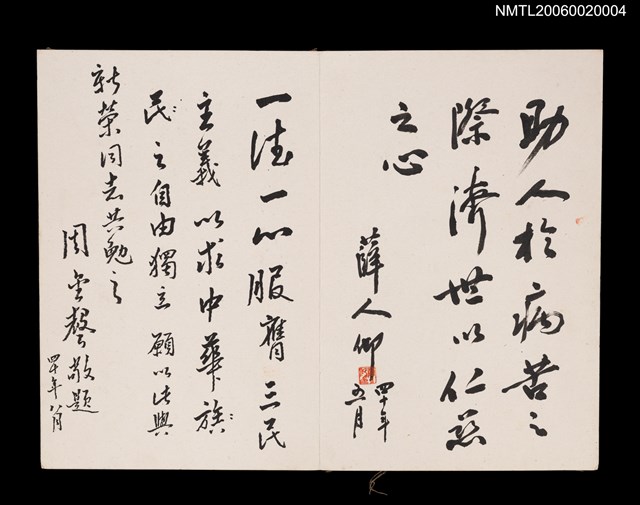 NMTL20060020004
助人於病苦之
際濟世以仁慈
之心
薛人仰
四十年
五月
一德一心服膺三民
主義以求中華族
民之自由獨立願以此與
新榮同志共勉之
周金聲敬題
四十年八月